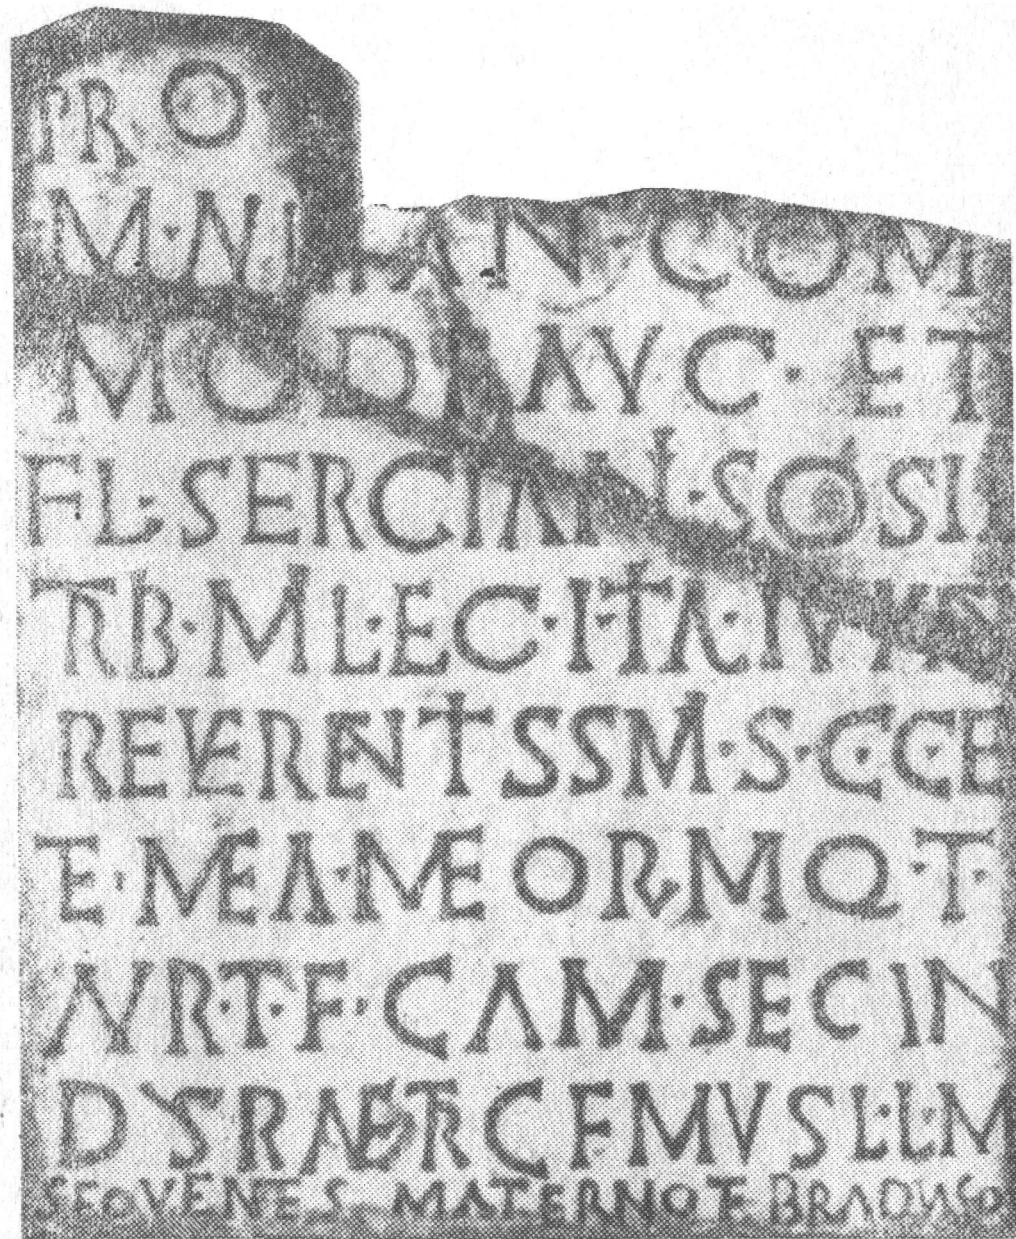 PRO·
M·N AN·COM
MODI AVG· ET
FL·SERGIANI·SOSIB
TRB·ML·EG·I·ITA·
REVERENTSSM·S·C·C·E
TE·MEA·MEORMQ·T·
AVR·T·F·CAM·SECVN
DVS MVSL·L·M
SEQVENTES MATERNO ET BRADVA CO